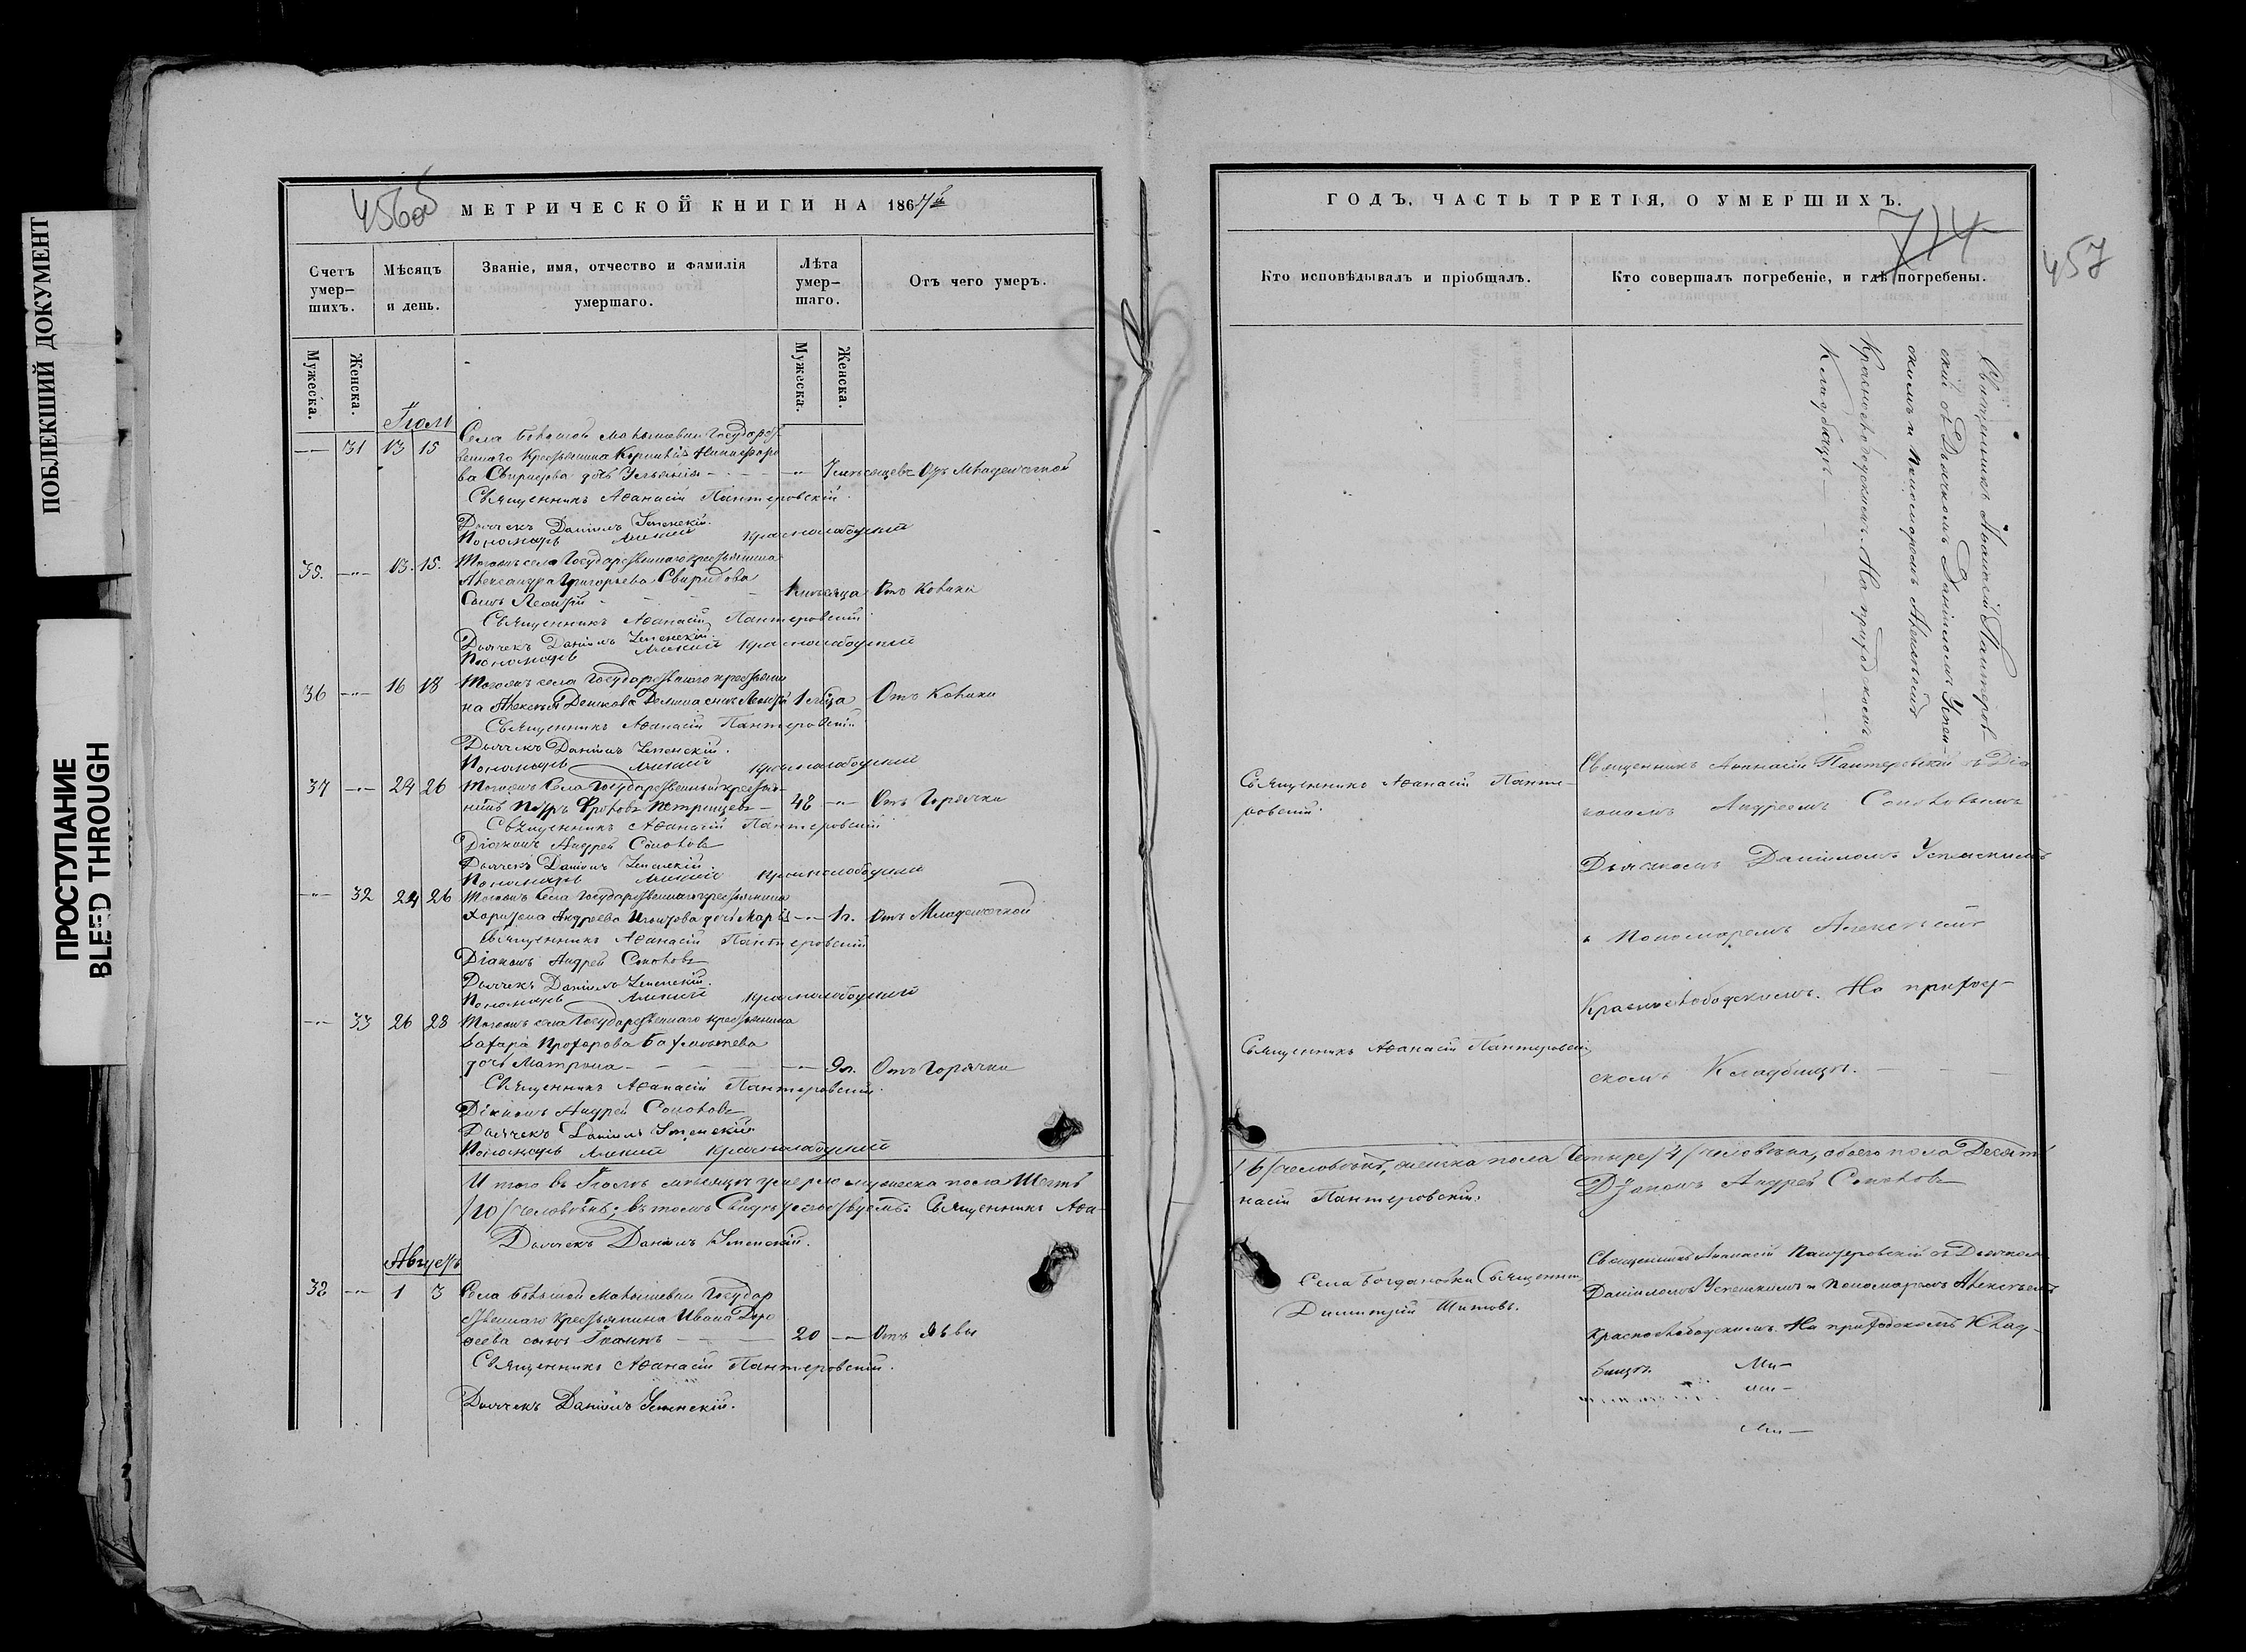 ПОБЛЕКШИЙ ДОКУМЕНТ
ПРОСТУПАНИЕ
BLEED THROUGH
456об
МЕТРИЧЕСКОЙ КНИГИ НА 1867й
Счетъ умер-шихъ.
Мѣсяцъ и день.
Званіе, имя, отчество и фамилія умершаго.
Лѣта умер-шаго.
Отъ чего умеръ.
Мужеска.
Женска.
Мужеска.
Женска.
Іюль
31 13 15
Села Большой Государст-
веннаго Крестьянина Никифоро
ва Свиридова дочь Ульянія — " Отъ Младенческой
Священникъ Аѳанасій Пантеровскій.
Дьячекъ Даніилъ Успенскій.
Пономарь Алексій Краснослободскій
35. —"— 13. 15. Тогожъ села Государственнаго крестьянина
Александра Григорьева Свиридова
Сынъ Леонтій — — — Отъ Колики
Священникъ Аѳанасій Пантеровскій
Дьячекъ Даніилъ Успенскій.
Пономарь Алексій Краснослободскій
36 —"— 16 18 Тогожъ села Государственнаго крестьяни
на Алексѣя 1 мѣсяца Отъ Колики
Священникъ Аѳанасій Пантеровскій.
Дьячекъ Даніилъ Успенскій.
Пономарь Алексій Краснослободскій
37 —"— 24 26 Тогожъ Села Государственный крестья-
нинъ Петръ Фроловъ Петрищевъ — 48 —"— Отъ Горячки
Священникъ Аѳанасій Пантеровскій
Діаконъ Андрей Соколовъ
Дьячекъ Даніилъ Успенскій.
Пономарь Алексій Краснослободскій
—"— 32 24 26 Тогожъ Села Государственнаго крестьянина
Харитона Андреева дочь Марія —"— 1 г. Отъ Младенческой
Священникъ Аѳанасій Пантеровскій
Діаконъ Андрей Соколовъ
Дьячекъ Даніилъ Успенскій.
Пономарь Алексій Краснослободскій
—"— 33 26 28 Тогожъ села Государственнаго крестьянина
Захара Прохорова
дочь Матрона — — — —"— 9 л. Отъ Горячки
Священникъ Аѳанасій Пантеровскій.
Діаконъ Андрей Соколовъ
Дьячекъ Даніилъ Успенскій.
Пономарь Алексій Краснослободскій
Итого въ Іюлѣ мѣсяцѣ умерло мужеска пола Шесть
/10/ человѣкъ; въ томъ Свидѣтельствуемъ: Священникъ Аѳа-
Дьячекъ Даніилъ Успенскій.
Августъ
38 —"— 1 3 Села Большой Государ
ственнаго Крестьянина Ивана Доро
ѳеева сынъ — — 20 —"— Отъ Язвы
Священникъ Аѳанасій Пантеровскій.
Дьячекъ Даніилъ Успенскій.
ГОДЪ, ЧАСТЬ ТРЕТІЯ, О УМЕРШИХЪ.
714
457
Кто исповѣдывалъ и пріобщалъ.
Кто совершалъ погребеніе, и гдѣ погребены.
Священникъ Аѳанасій Пантеров-
скій съ Дьячкомъ Даніиломъ Успен-
скимъ и Пономаремъ Алексѣемъ
Краснослободскимъ. На приходскомъ
Кладбищѣ —
Священникъ Аѳанасій Панте-
ровскій.
Священникъ Аѳанасій Пантеровскій съ Діа
кономъ Андреемъ Соколовымъ
Дьячкомъ Даніиломъ Успенскимъ
и Пономаремъ Алексѣемъ
Краснослободскимъ. На приход-
скомъ Кладбищѣ. — — —
Священникъ Аѳанасій Пантеровскій
/6/ человѣкъ, женска пола Четыре /4/ человѣка, обоего пола Десять
насій Пантеровскій.
Діаконъ Андрей Соколовъ
Села Богдановки Священникъ
Димитрій Шитовъ.
Священникъ Аѳанасій Пантеровскій съ Дьячкомъ
Даніиломъ Успенскимъ и Пономаремъ Алексѣемъ
Краснослободскимъ. На приходскомъ Клад-
бищѣ.